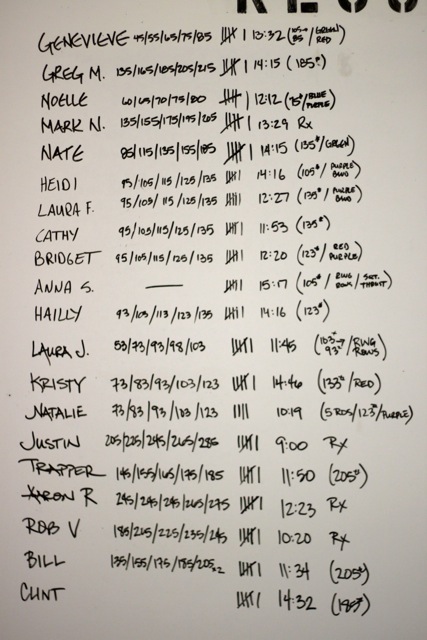 GENEVIEVE 45/55/65/75/85 |||| | 13:32 (105#→85#/GREEN RED)
GREG M. 135/165/185/205/215 |||| | 14:15 (185#)
NOELLE 60/65/70/75/80 |||| | 12:12 (75#/BLUE PURPLE)
MARK N. 135/155/175/195/205 |||| | 13:29 Rx
NATE 85/115/135/155/185 |||| | 14:15 (135#/GREEN)
HEIDI 95/105/115/125/135 |||| | 14:16 (105#/PURPLE BLUE)
LAURA F. 95/105/115/125/135 |||| | 12:27 (135#/PURPLE BLUE)
CATHY 95/105/115/125/135 |||| | 11:53 (135#)
BRIDGET 95/105/115/125/135 |||| | 12:20 (123#/RED PURPLE)
ANNA S. — |||| | 15:17 (105#/RING ROWS/
HAILLY 93/103/113/123/135 |||| | 14:16 (123#)
LAURA J. 53/73/93/98/103 |||| | 11:45 (103#→93#/RING ROWS)
KRISTY 73/83/93/103/123 |||| | 14:46 (133#/RED)
NATALIE 73/83/93/103/123 |||| 10:19 (5 RDS/123#/PURPLE)
JUSTIN 205/225/245/265/285 |||| | 9:00 Rx
TRAPPER 145/155/165/175/185 |||| | 11:50 (205#)
AARON R 245/245/245/265/275 |||| | 12:23 Rx
ROB V 185/205/225/235/245 |||| | 10:20 Rx
BILL 135/155/175/185/205x2 |||| | 11:34 (205#)
CLINT |||| | 14:32 (185#)